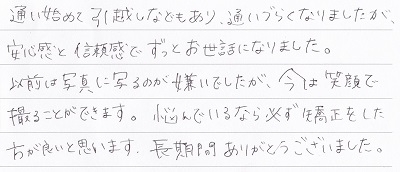 通い始めて引越しなどもあり、通いづらくなりましたが、
安心感と信頼感でずっとお世話になりました。
以前は写真に写るのが嫌いでしたが、今は笑顔で
撮ることができます。悩んでいるなら必ず矯正をした
方が良いと思います。長期間ありがとうございました。